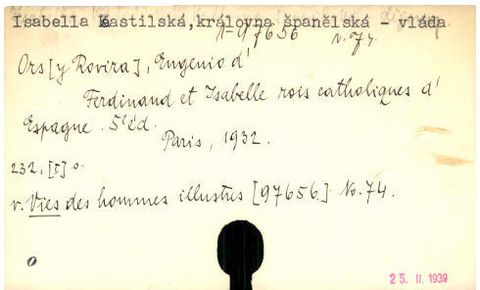 Isabella Kastilská, královna španělská - vláda
A-97656 v. 74.
Ors [y Rovira], Eugenio d'
Ferdinand et Isabelle rois catholiques d'
Espagne. 5e éd.
Paris, 1932.
232, [I] s.
v. Vies des hommes illustres [97656] No. 74.
0
25. II. 1939